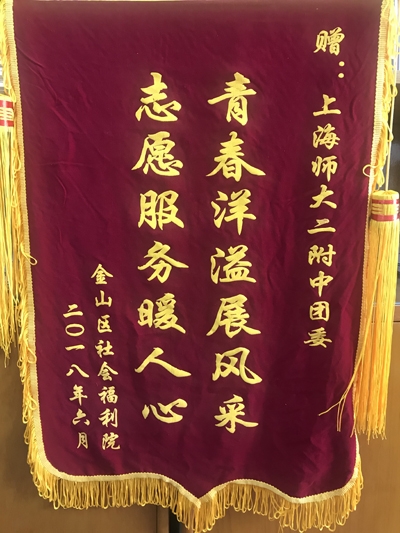 赠：上海师大二附中团委
青春洋溢展风采
志愿服务暖人心
金山区社会福利院
二〇一八年六月